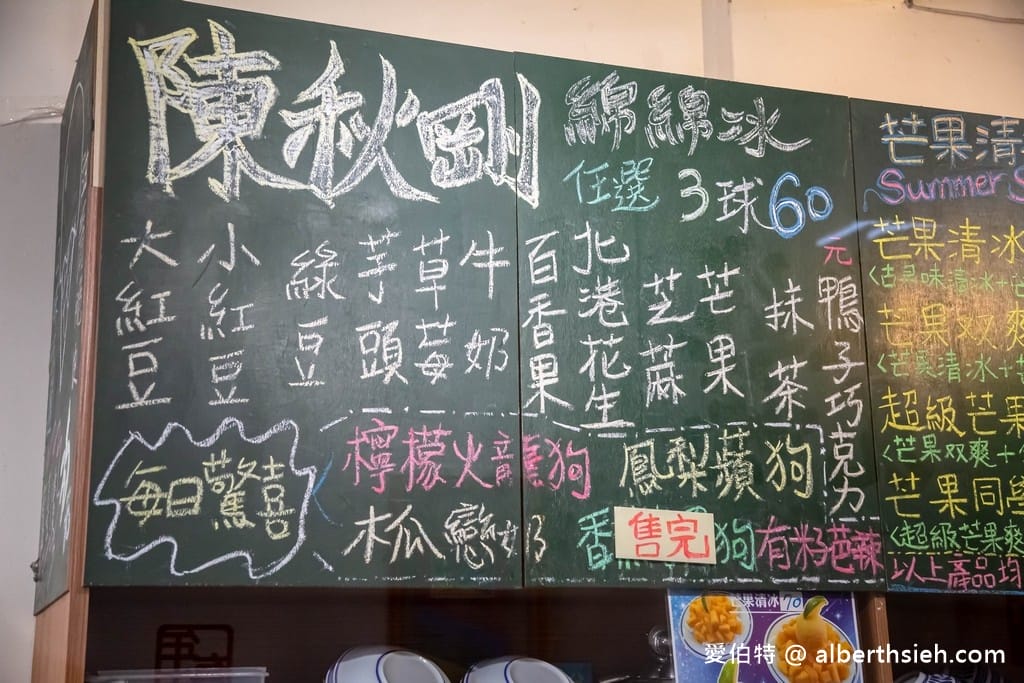 陳秋剛
綿綿冰
任選 3球60元
大紅豆
小紅豆
綠豆
芋頭
草莓
牛奶
百香果
北港花生
芝蔴
芒果
抹茶
鴨子巧克力
每日驚喜
檸檬火龍狗
鳳梨蘋狗
木瓜戀奶
香
售完
狗
有米芭辣
芒果清冰
Summer S
芒果清冰
芒果双爽
超級芒果
<芒果双爽+
芒果同學
<超級芒果爽
以上產品均
芒果清冰 70
愛伯特 @ alberthsieh.com